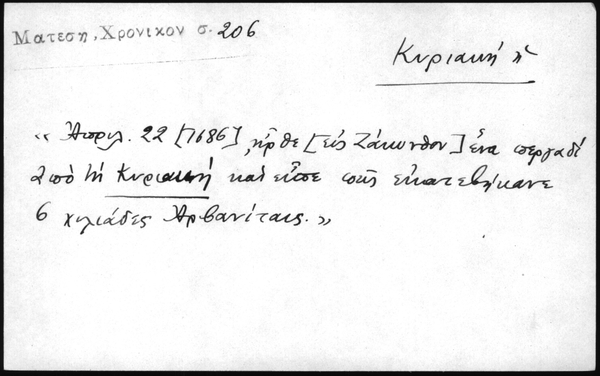 Ματεση, Χρονικον σ. 206
Κυριακή ἡ
« Ἀπριλ. 22 [1686], ἦρθε [εἰς Ζάκυνθον] ἕνα περγαδὶ
ἀπὸ τὴ Κυριακὴ καὶ εἶπε πῶς ἐκατεβήκανε
6 χιλιάδες Ἀρβανίταις. »